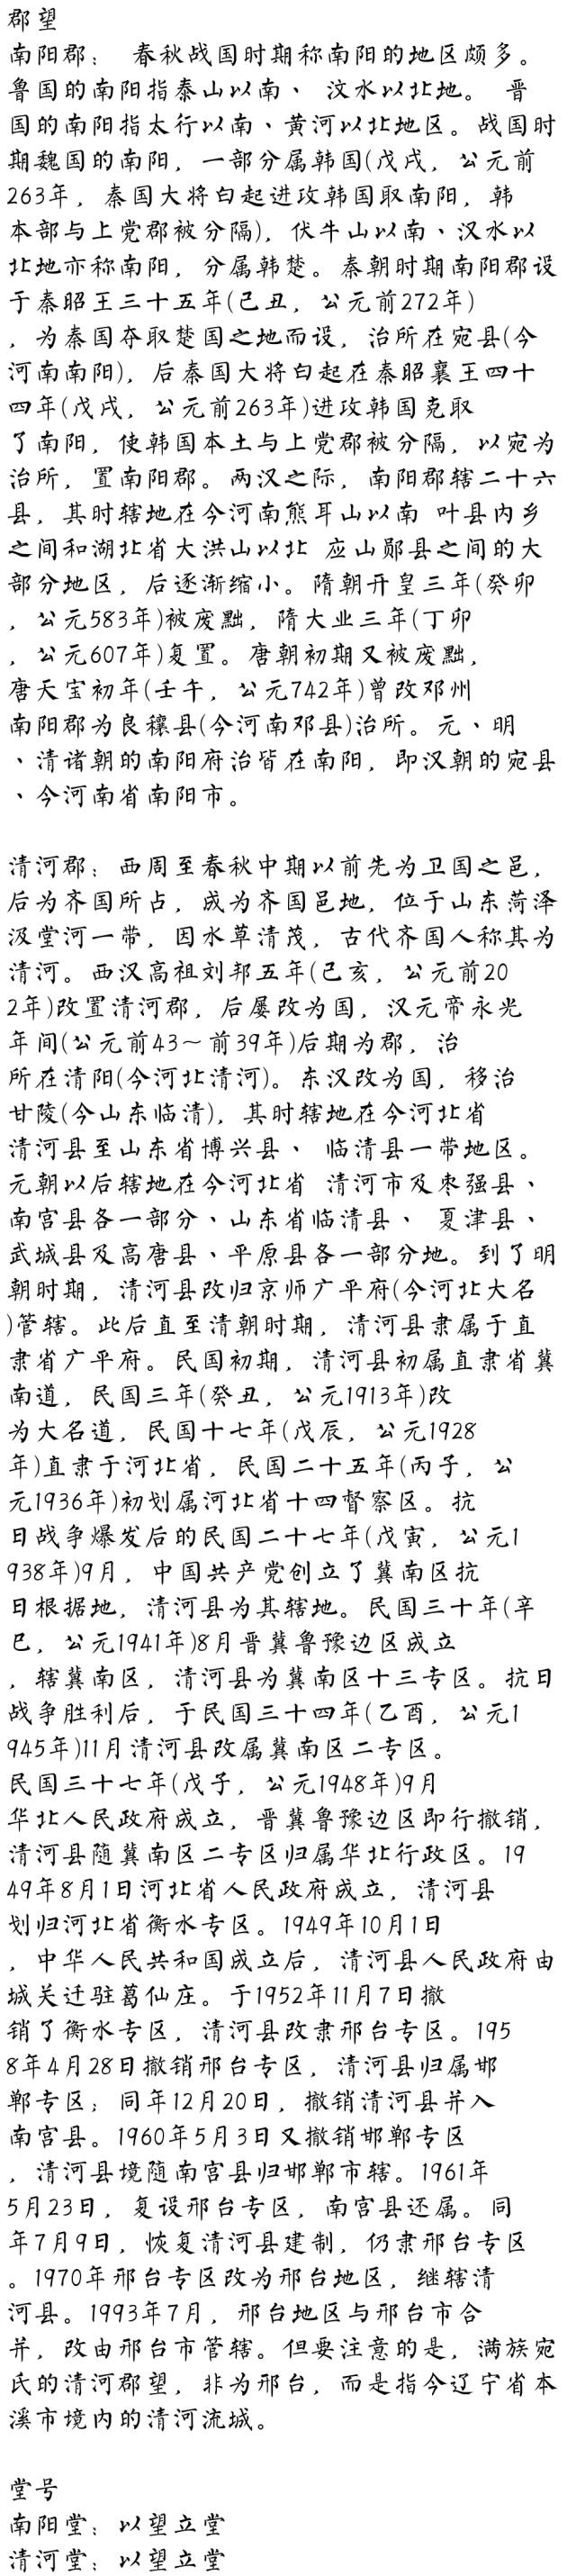 郡望
南阳郡： 春秋战国时期称南阳的地区颇多。
鲁国的南阳指泰山以南、 汶水以北地。 晋
国的南阳指太行以南、黄河以北地区。战国时
期魏国的南阳，一部分属韩国(戊戌，公元前
263年，秦国大将白起进攻韩国取南阳，韩
本部与上党郡被分隔)，伏牛山以南、汉水以
北地亦称南阳，分属韩楚。秦朝时期南阳郡设
于秦昭王三十五年(己丑，公元前272年)
，为秦国夺取楚国之地而设，治所在宛县(今
河南南阳)，后秦国大将白起在秦昭襄王四十
四年(戊戌，公元前263年)进攻韩国克取
了南阳，使韩国本土与上党郡被分隔，以宛为
治所，置南阳郡。两汉之际，南阳郡辖二十六
县，其时辖地在今河南熊耳山以南 叶县内乡
之间和湖北省大洪山以北 应山郧县之间的大
部分地区，后逐渐缩小。隋朝开皇三年(癸卯
，公元583年)被废黜，隋大业三年(丁卯
，公元607年)复置。唐朝初期又被废黜，
唐天宝初年(壬午，公元742年)曾改邓州
南阳郡为良穰县(今河南邓县)治所。元、明
、清诸朝的南阳府治皆在南阳，即汉朝的宛县
、今河南省南阳市。

清河郡：西周至春秋中期以前先为卫国之邑，
后为齐国所占，成为齐国邑地，位于山东菏泽
汲堂河一带，因水草清茂，古代齐国人称其为
清河。西汉高祖刘邦五年(己亥，公元前20
2年)改置清河郡，后屡改为国，汉元帝永光
年间(公元前43～前39年)后期为郡，治
所在清阳(今河北清河)。东汉改为国，移治
甘陵(今山东临清)，其时辖地在今河北省
清河县至山东省博兴县、 临清县一带地区。
元朝以后辖地在今河北省 清河市及枣强县、
南宫县各一部分、山东省临清县、 夏津县、
武城县及高唐县、平原县各一部分地。到了明
朝时期，清河县改归京师广平府(今河北大名
)管辖。此后直至清朝时期，清河县隶属于直
隶省广平府。民国初期，清河县初属直隶省冀
南道，民国三年(癸丑，公元1913年)改
为大名道，民国十七年(戊辰，公元1928
年)直隶于河北省，民国二十五年(丙子，公
元1936年)初划属河北省十四督察区。抗
日战争爆发后的民国二十七年(戊寅，公元1
938年)9月，中国共产党创立了冀南区抗
日根据地，清河县为其辖地。民国三十年(辛
巳，公元1941年)8月晋冀鲁豫边区成立
，辖冀南区，清河县为冀南区十三专区。抗日
战争胜利后，于民国三十四年(乙酉，公元1
945年)11月清河县改属冀南区二专区。
民国三十七年(戊子，公元1948年)9月
华北人民政府成立，晋冀鲁豫边区即行撤销，
清河县随冀南区二专区归属华北行政区。19
49年8月1日河北省人民政府成立，清河县
划归河北省衡水专区。1949年10月1日
，中华人民共和国成立后，清河县人民政府由
城关迁驻葛仙庄。于1952年11月7日撤
销了衡水专区，清河县改隶邢台专区。195
8年4月28日撤销邢台专区，清河县归属邯
郸专区；同年12月20日，撤销清河县并入
南宫县。1960年5月3日又撤销邯郸专区
，清河县境随南宫县归邯郸市辖。1961年
5月23日，复设邢台专区，南宫县还属。同
年7月9日，恢复清河县建制，仍隶邢台专区
。1970年邢台专区改为邢台地区，继辖清
河县。1993年7月，邢台地区与邢台市合
并，改由邢台市管辖。但要注意的是，满族宛
氏的清河郡望，非为邢台，而是指今辽宁省本
溪市境内的清河流域。

堂号
南阳堂：以望立堂
清河堂：以望立堂